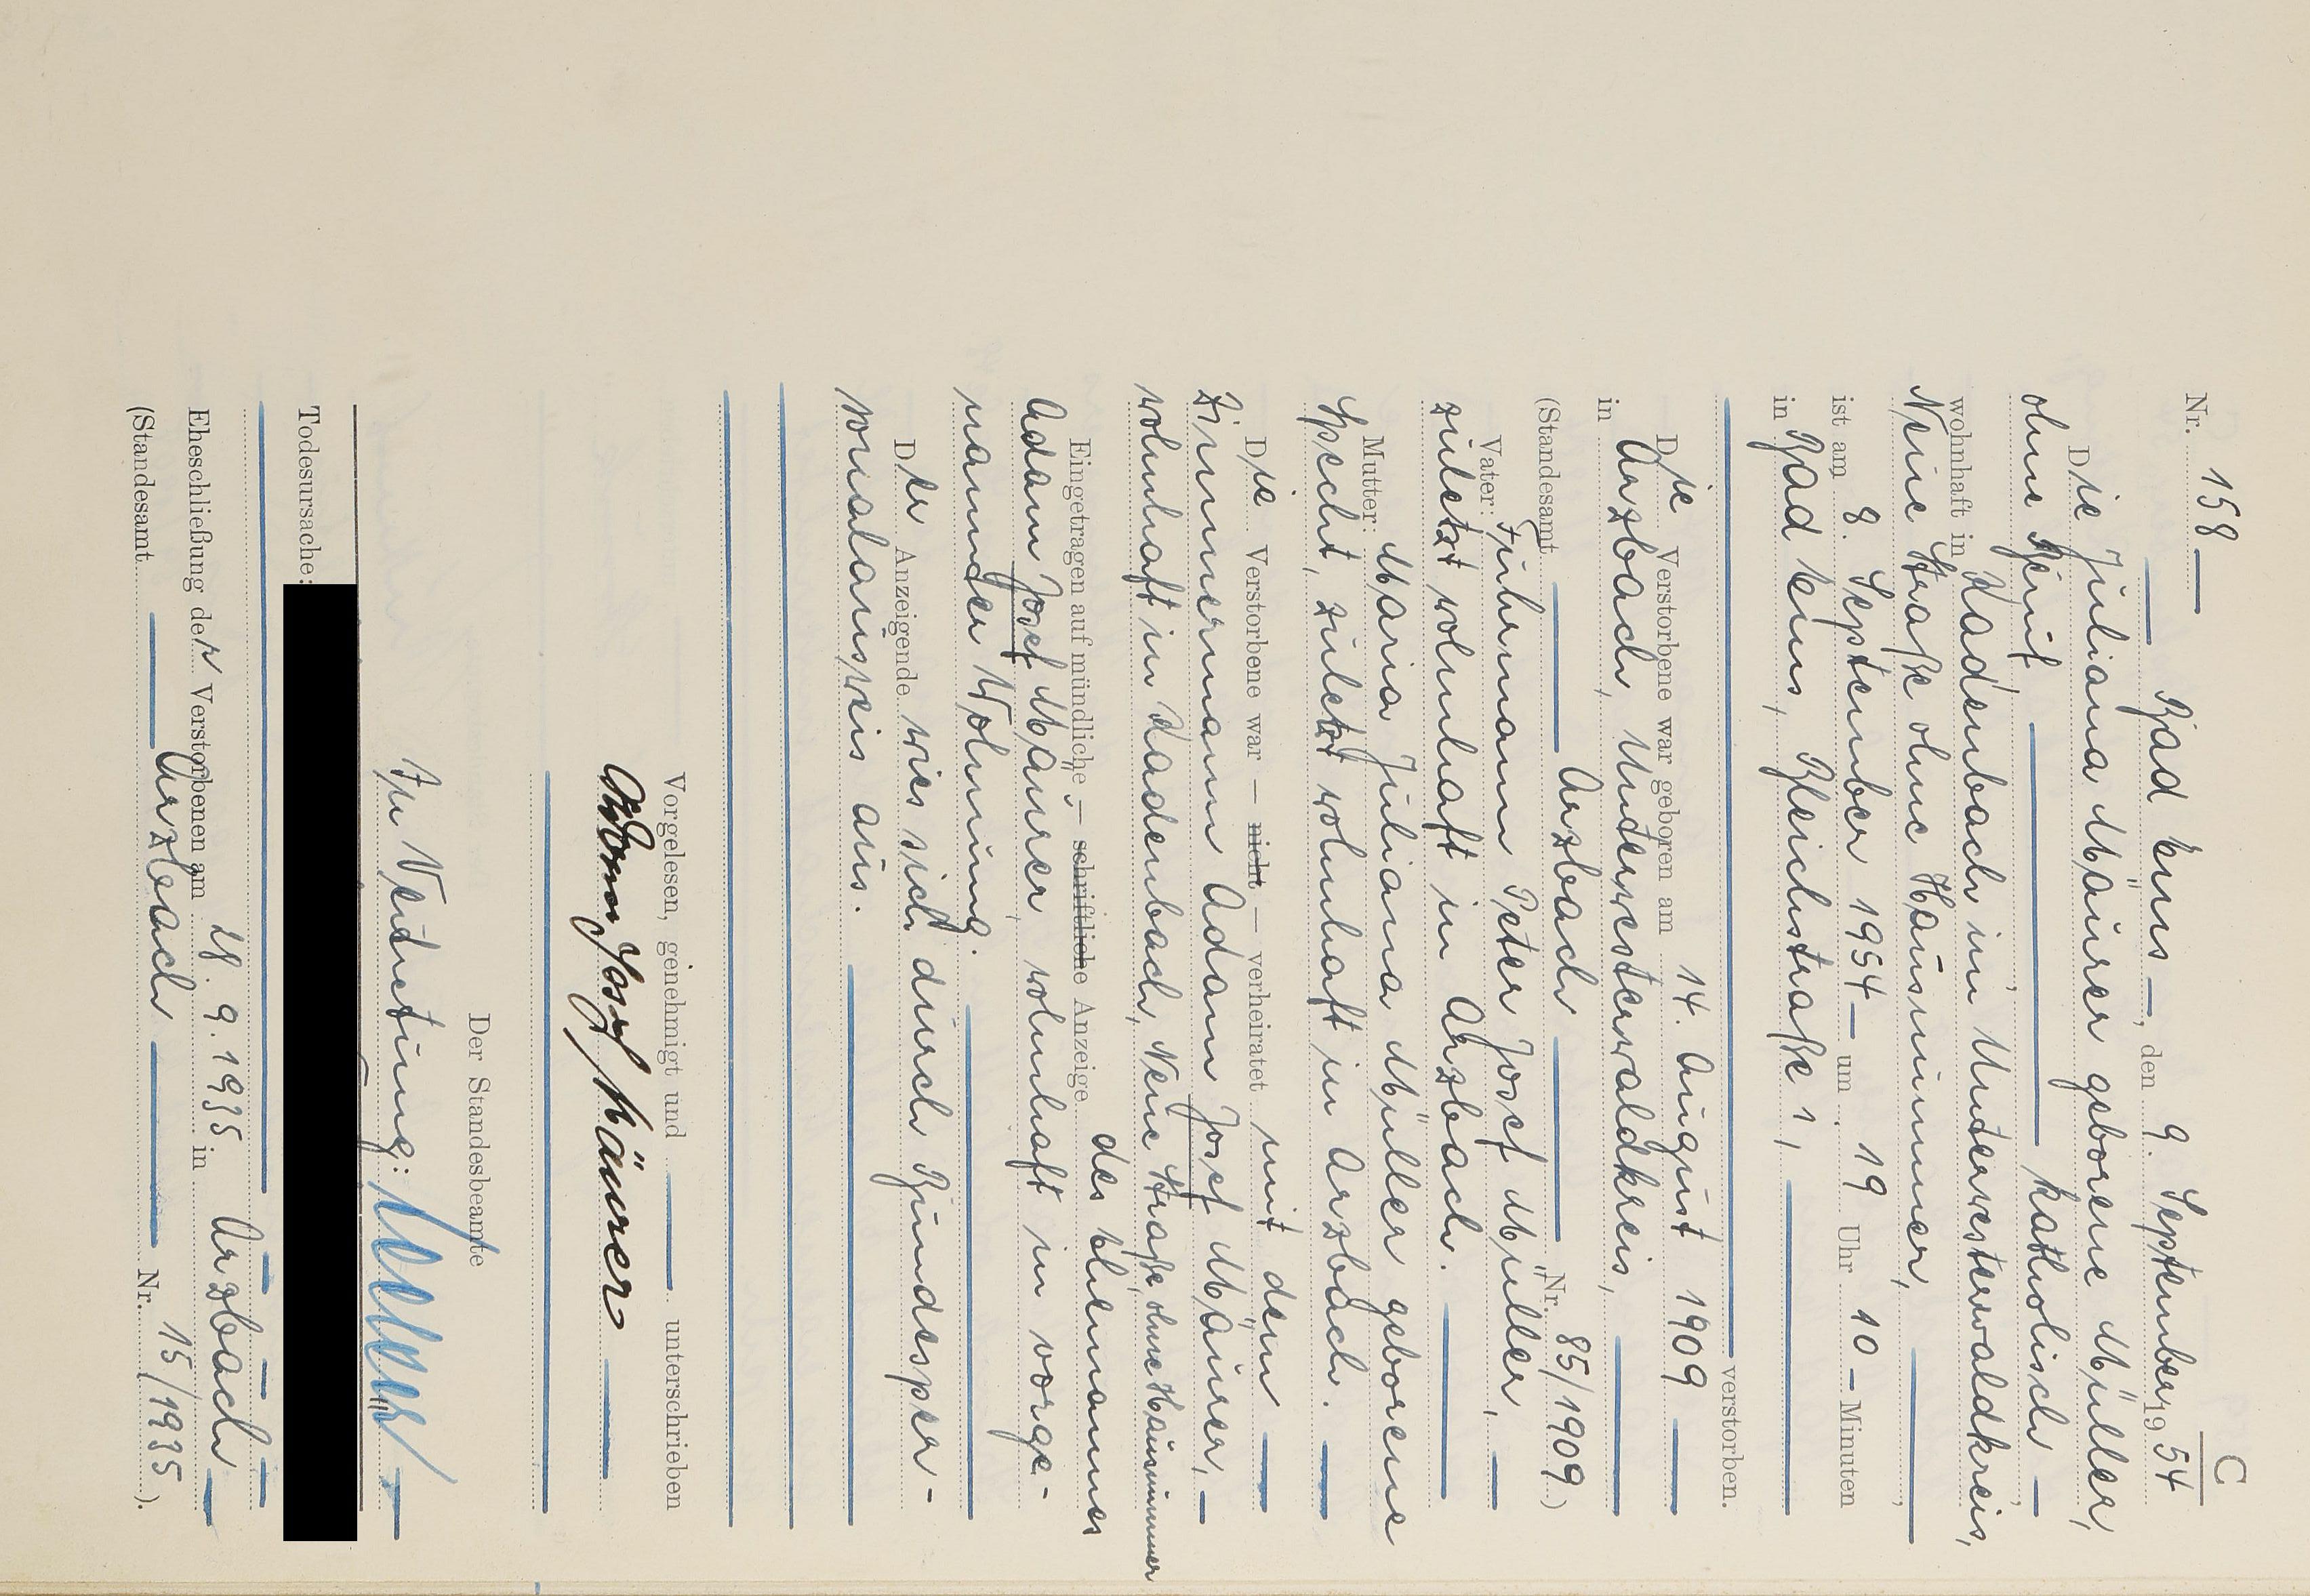 C
Nr. 158
Bad Ems, den 9. September 1954
Die Juliana Mäurer geborene Müller,
ohne Beruf, katholisch
wohnhaft in Kadenbach im Unterwesterwaldkreis,
Neue Straße ohne Hausnummer,
ist am 8. September 1954 um 19 Uhr 10 Minuten
in Bad Ems, Bleichstraße 1,
verstorben.
Die Verstorbene war geboren am 14. August 1909
in Arzbach, Unterwesterwaldkreis,
(Standesamt Arzbach Nr. 85/1909)
Vater: Fuhrmann Peter Josef Müller,
zuletzt wohnhaft in Arzbach.
Mutter: Maria Juliana Müller geborene
Specht, zuletzt wohnhaft in Arzbach.
Die Verstorbene war — nicht — verheiratet mit dem
Zimmermann Adam Josef Mäurer,
wohnhaft in Kadenbach, Neue Straße, ohne Hausnummer
Eingetragen auf mündliche — schriftliche Anzeige des Ehemannes
Adam Josef Mäurer, wohnhaft in vorge-
nannter Wohnung.
Der Anzeigende wies sich durch Bundesper-
sonalausweis aus.
Vorgelesen, genehmigt und unterschrieben
Adam Josef Mäurer
Der Standesbeamte
In Vertretung:
Todesursache:
Eheschließung der Verstorbenen am 28. 9. 1935 in Arzbach
(Standesamt Arzbach Nr. 15/1935).